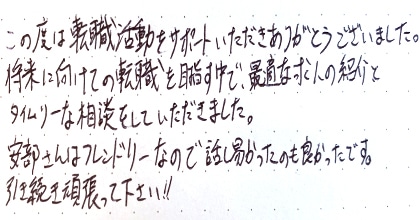 この度は転職活動をサポートいただきありがとうございました。
将来に向けての転職を目指す中で、最適な求人の紹介と
タイムリーな相談をしていただきました。
安部さんはフレンドリーなので話し易かったのも良かったです。
引き続き頑張って下さい!!